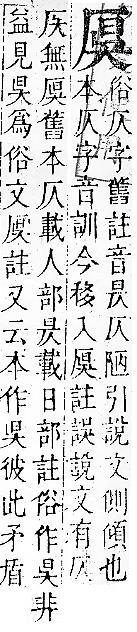 俗仄字舊註音昃仄陋引說文側傾也
本仄字音訓今移入註誤說文有仄
無舊本仄載人部昃載日部註俗作昗非
益見昗為俗文註又云本作昗彼此矛盾